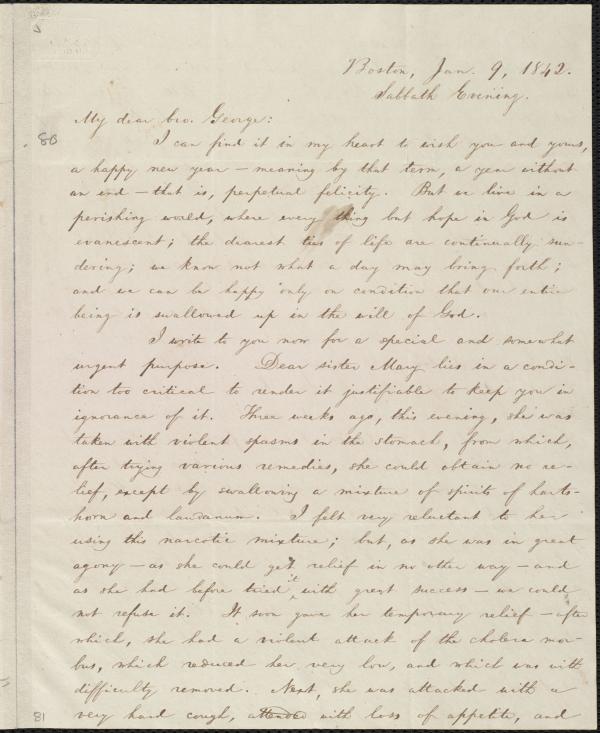 Boston, Jan. 9, 1842.
Sabbath Evening.
My dear bro. George:
80
I can find it in my heart to wish you and yours,
a happy new year — meaning by that term, a year without
an end — that is, perpetual felicity. But we live in a
perishing world, where every thing but hope in God is
evanescent; the dearest ties of life are continually sun-
dering; we know not what a day may bring forth;
and we can be happy only on condition that our entire
being is swallowed up in the will of God.
I write to you now for a special and somewhat
urgent purpose. Dear sister Mary lies in a condi-
tion too critical to render it justifiable to keep you in
ignorance of it. Three weeks ago, this evening, she was
taken with violent spasms in the stomach, from which,
after trying various remedies, she could obtain no re-
lief, except by swallowing a mixture of spirits of harts-
horn and laudanum. I felt very reluctant to her
using this narcotic mixture; but, as she was in great
agony — as she could get relief in no other way — and
as she had before tried it, with great success — we could
not refuse it. It soon gave her temporary relief — after
which, she had a violent attack of the cholera mor-
bus, which reduced her very low, and which was with
difficulty removed. Next, she was attacked with a
very hard cough, attended with loss of appetite, and
81